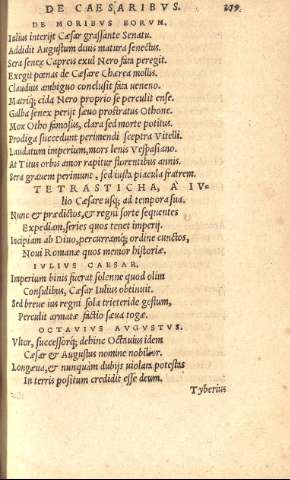 DE CAESARIBVS. 219
DE MORIBVS EORVM.
Iulius interijt Cæsar grassante Senatu.
Addidit Augustum diuis matura senectus.
Sera senex Capreis exul Nero fata peregit.
Exegit pœnas de Cæsare Chærea mollis.
Claudius ambiguo conclusit fata ueneno.
Matriq; cida Nero proprio se perculit ense.
Galba senex perijt sæuo prostratus Othone.
Mox Otho famosus, clara sed morte potitus.
Prodiga succedunt perimendi sceptra Vitelli.
Laudatum imperium, mors lenis Vespasiano.
At Titus orbis amor rapitur florentibus annis.
Sera grauem perimunt, sed iusta piacula fratrem.
TETRASTICHA, A IV-
lio Cæsare usq; ad tempora sua.
Nunc & prædictos, & regni sorte sequentes
Expediam, series quos tenet imperij.
Incipiam ab Diuo, percurramq; ordine cunctos,
Noui Romanæ quos memor historiæ.
IVLIVS CAESAR.
Imperium binis fuerat solenne quod olim
Consulibus, Cæsar Iulius obtinuit.
Sed breue ius regni sola trieteride gestum,
Perculit armatæ factio sæua togæ.
OCTAVIVS AVGVSTVS.
Vltor, successorq; dehinc Octauius idem
Cæsar & Augustus nomine nobilior.
Longæua, & nunquam dubijs uiolata potestas
In terris positum credidit esse deum.
Tyberius